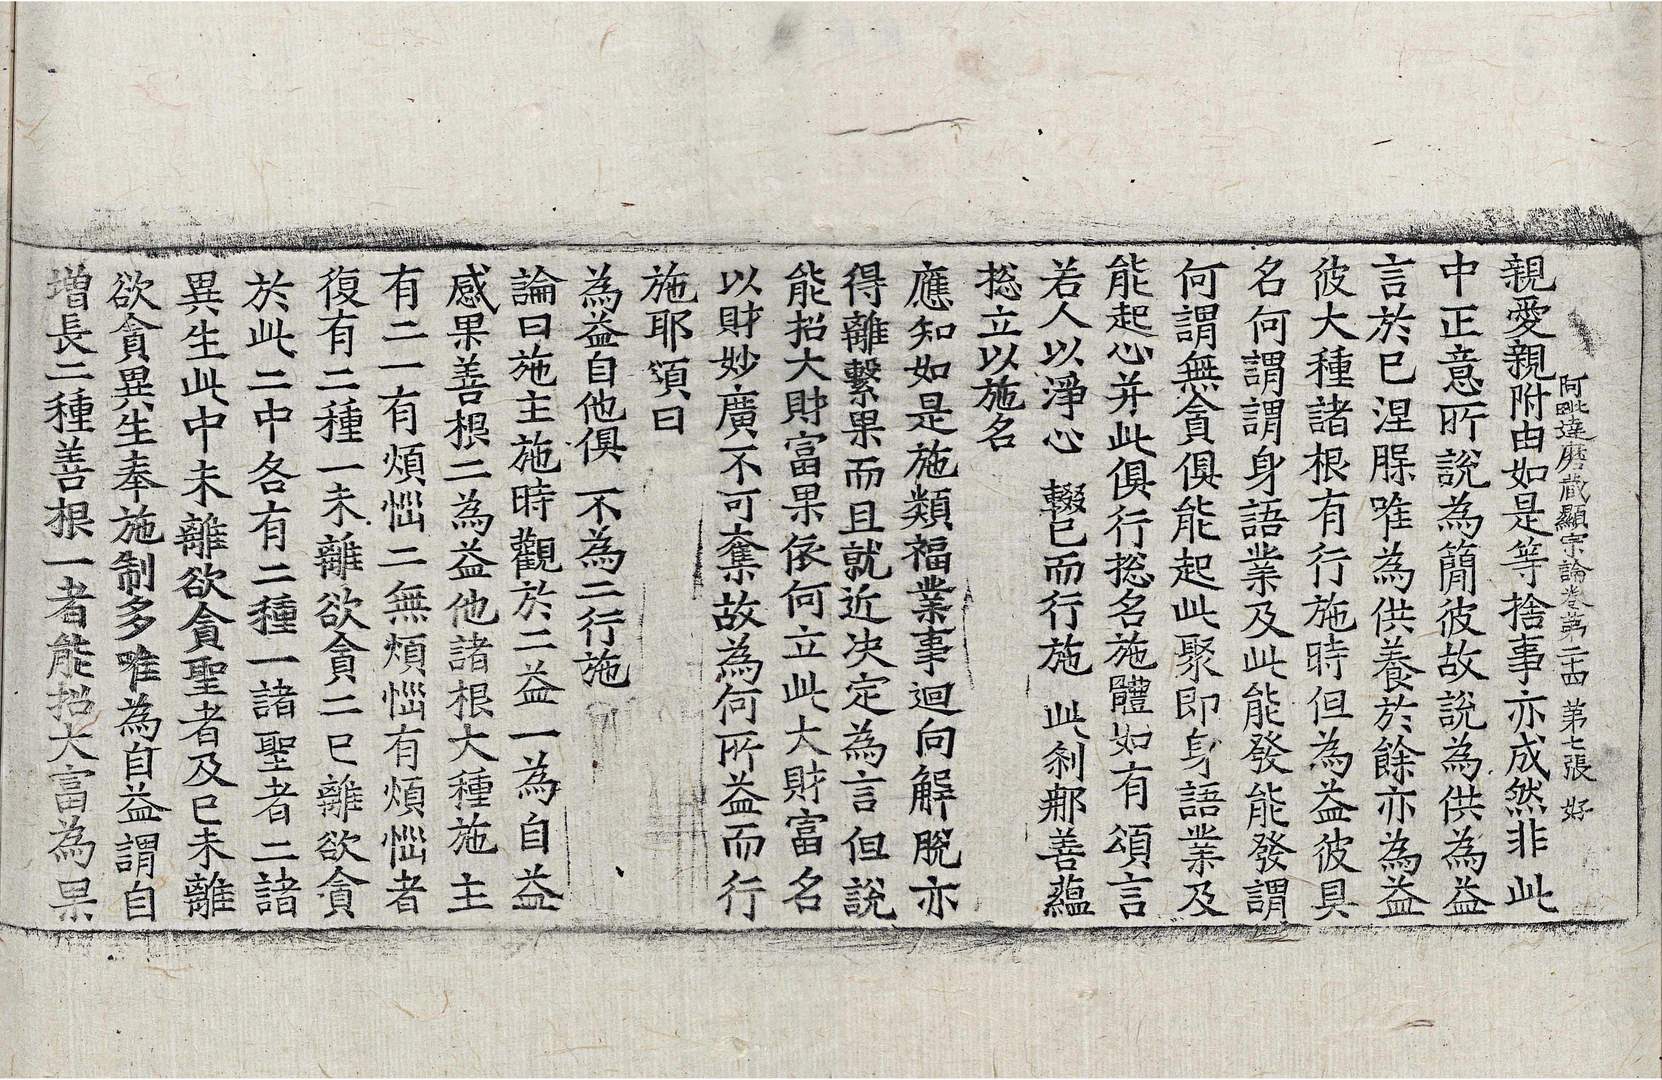 阿毗達磨藏顯宗論卷第二十四 第七張 好
親愛親附由如是等捨事亦成然非此
中正意所說為簡彼故說為供為益
言於已涅槃唯為供養於餘亦為益
彼大種諸根有行施時但為益彼具
名何謂謂身語業及此能發能發謂
何謂無貪俱能起此聚即身語業及
能起心并此俱行揔名施體如有頌言
若人以淨心 輟已而行施 此剎那善蘊
揔立以施名
應知如是施類福業事迴向解脫亦
得離繫果而且就近決定為言但說
能招大財富果依何立此大財富名
以財妙廣不可奪故為何所益而行
施耶頌曰
為益自他俱 不為二行施
論曰施主施時觀於二益一為自益
感果善根二為益他諸根大種施主
有二一有煩惱二無煩惱有煩惱者
復有二種一未離欲貪二已離欲貪
於此二中各有二種一諸聖者二諸
異生此中未離欲貪聖者及已未離
欲貪異生奉施制多唯為自益謂自
增長二種善根一者能招大富為果